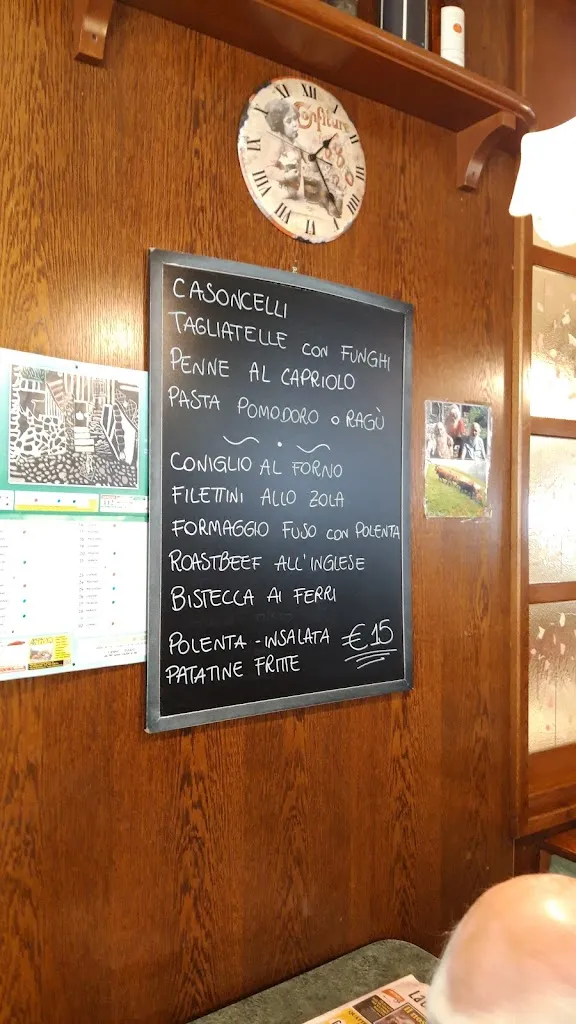 CASONCELLI
TAGLIATELLE CON FUNGHI
PENNE AL CAPRIOLO
PASTA POMODORO o RAGÙ
CONIGLIO AL FORNO
FILETTINI ALLO ZOLA
FORMAGGIO FUSO CON POLENTA
ROASTBEEF ALL'INGLESE
BISTECCA AI FERRI
POLENTA - INSALATA €15
PATATINE FRITTE